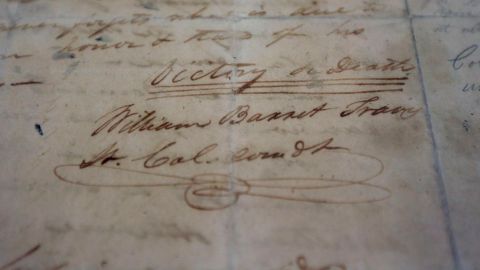 forgets what is due to
honor & that of his
Victory or Death
William Barret Travis
Lt. Col. comdt